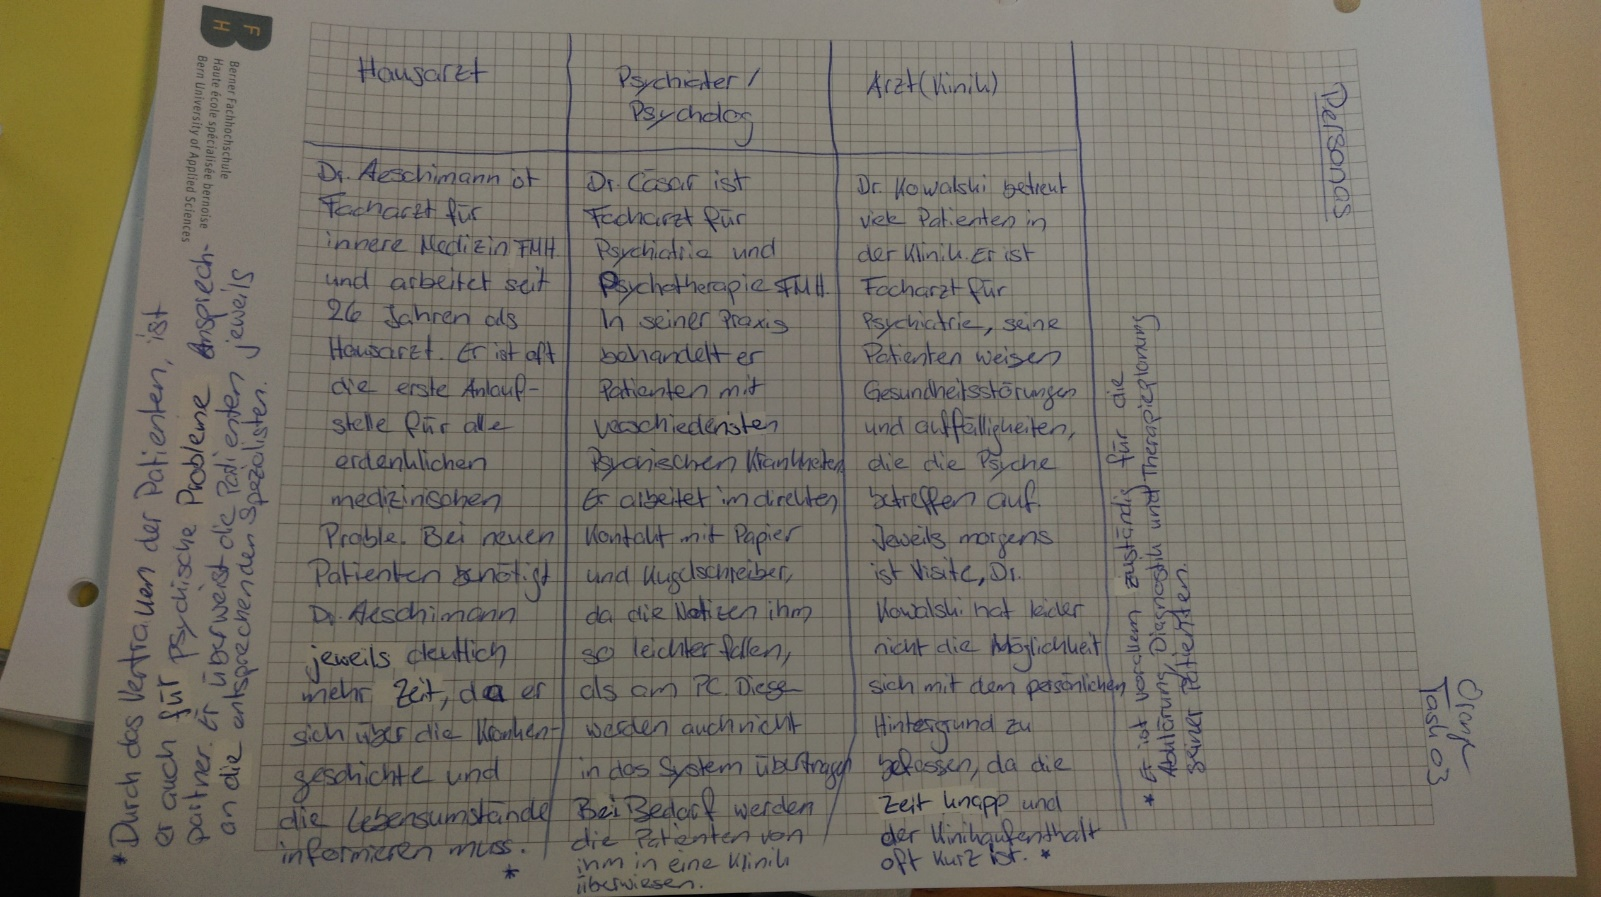 Personas
Hausarzt
Dr. Aeschimann ist
Facharzt für
innere Medizin FMH
und arbeitet seit
26 Jahren als
Hausarzt. Er ist oft
die erste Anlauf-
stelle für alle
erdenklichen
medizinischen
Proble. Bei neuen
Patienten benötigt
Dr. Aeschimann
jeweils deutlich
mehr Zeit, da er
sich über die Kranken-
geschichte und
die Lebensumstände
informieren muss.
*
Psychiater/
Psycholog
Dr. Cäsar ist
Facharzt für
Psychiatrie und
Psychotherapie FMH.
In seiner Praxis
behandelt er
Patienten mit
verschiedensten
Psychischen Krankheiten
Er arbeitet im direkten
Kontakt mit Papier
und Kugelschreiber,
da die Notizen ihm
so leichter fallen,
als am PC. Diese
werden auch nicht
in das System übertragen
Bei Bedarf werden
die Patienten von
ihm in eine Klinik
überwiesen.
Arzt (Klinik)
Dr. Kowalski betreut
viele Patienten in
der Klinik. Er ist
Facharzt für
Psychiatrie, seine
Patienten weisen
Gesundheitsstörungen
und auffälligkeiten,
die die Psyche
betreffen auf.
Jeweils morgens
ist Visite, Dr.
Kowalski hat leider
nicht die Möglichkeit
sich mit dem persönlichen
Hintergrund zu
befassen, da die
Zeit knapp und
der Klinikaufenthalt
oft kurz ist. *
* Er ist vorallem zuständig für die
Abklärung, Diagnostik und Therapieplanung
seiner Patienten.
* Durch das Vertrauen der Patienten, ist
er auch für psychische Probleme Ansprech-
partner. Er überweist die Patienten jeweils
an die entsprechenden Spezialisten.
Orange
Task 03
F
B
H
Berner Fachhochschule
Haute école spécialisée bernoise
Bern University of Applied Sciences